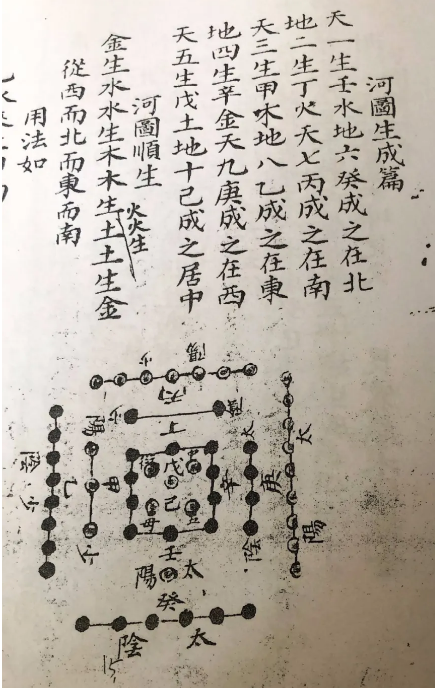 河圖生成篇
天一生壬水地六癸成之在北
地二生丁火天七丙成之在南
天三生甲木地八乙成之在東
地四生辛金天九庚成之在西
天五生戊土地十己成之居中
河圖順生
火火生
金生水水生木木生土土生金
從西而北而東而南
用法如
少陽
丙
少陰
丁
太陽
庚
太陰
辛
戊
己
母
少陽
甲
少陰
乙
壬
太陽
癸
太陰
15